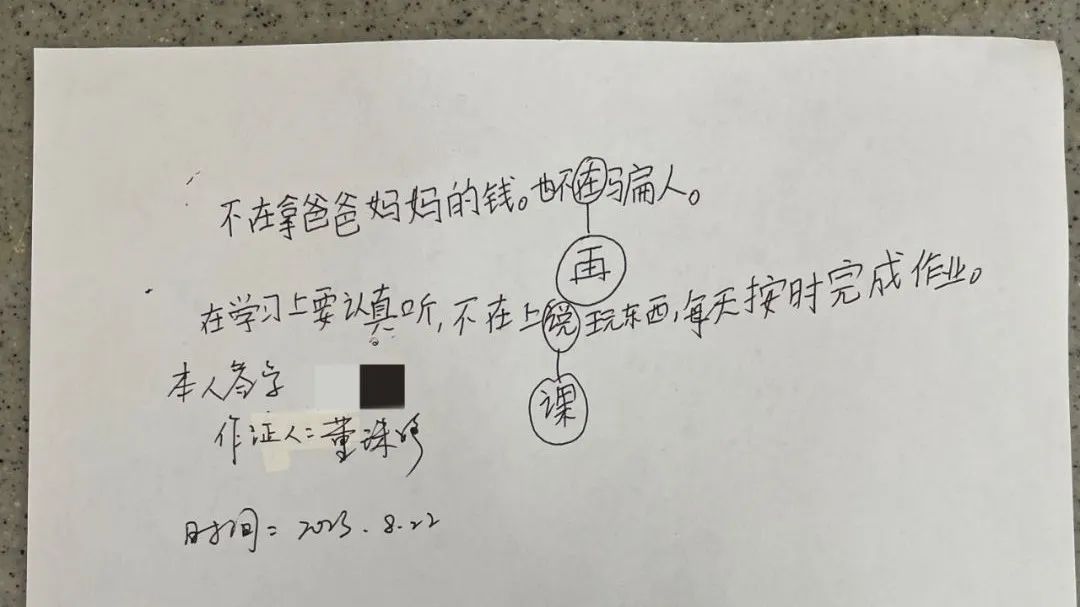 不在拿爸爸妈妈的钱。也不在骗人。
再
在学习上要认真听,不在上说玩东西,每天按时完成作业。
课
本人签字
作证人:董珠婷
时间:2023.8.22